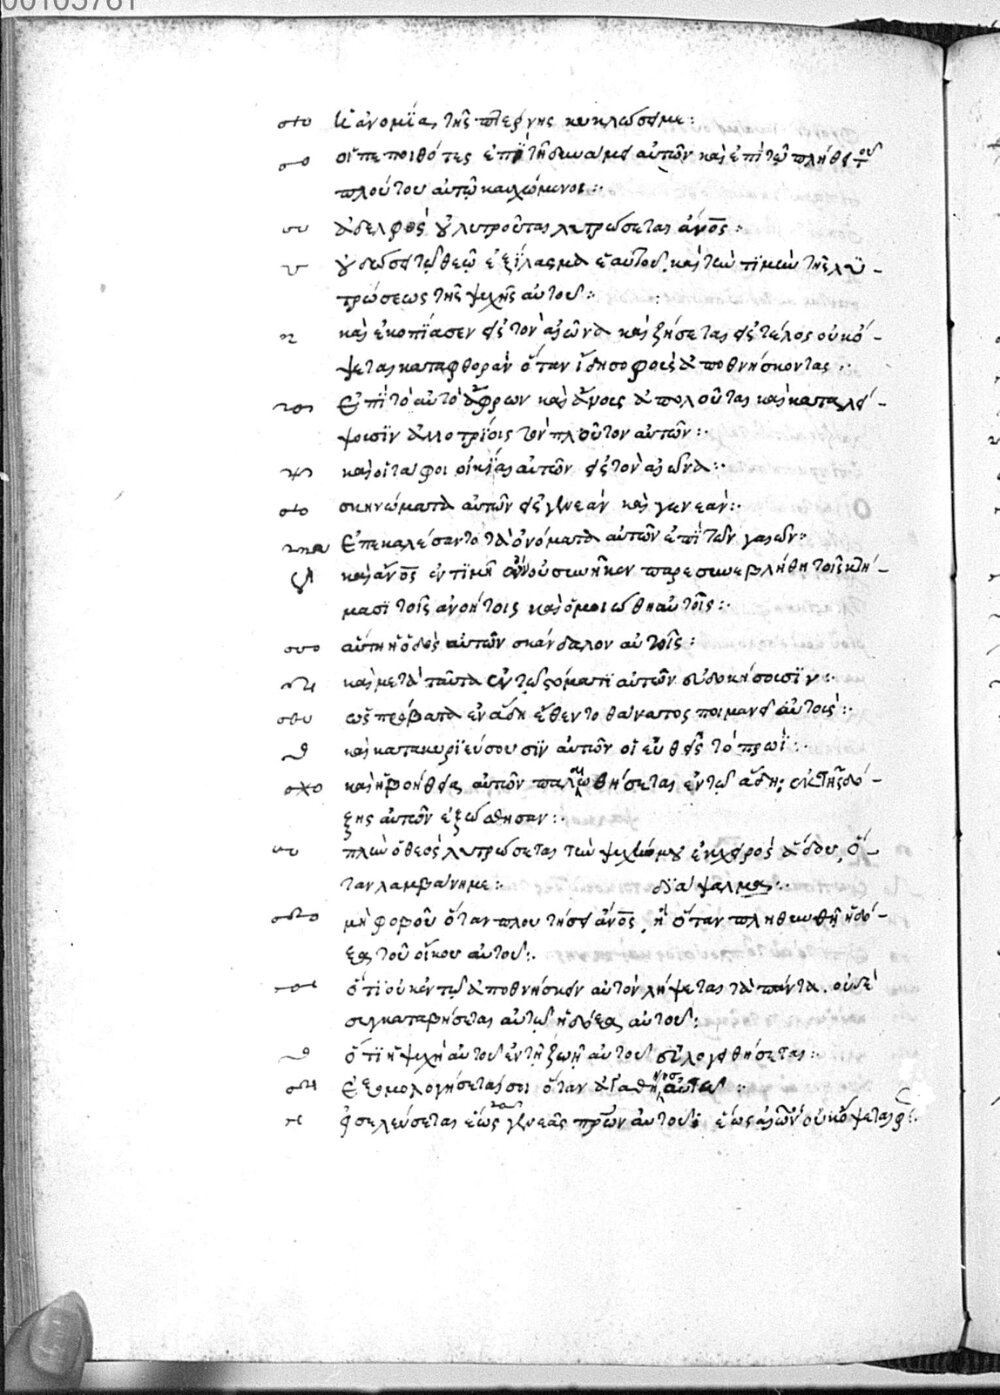 00105761
ἡ ἀνομία τῆς πτέρνης κυκλώσει με:
οἱ πεποιθότες ἐπὶ τῇ δυνάμει αὐτῶν καὶ ἐπὶ τῷ πλήθει τοῦ
πλούτου αὐτῶν καυχώμενοι:
ἀδελφὸς οὐ λυτροῦται λυτρώσεται ἄνος:
οὐ δώσει τῷ θεῷ ἐξίλασμα ἑαυτοῦ. καὶ τὴν τιμὴν τῆς λυ-
τρώσεως τῆς ψυχῆς αὐτοῦ:
καὶ ἐκοπίασεν εἰς τὸν αἰῶνα καὶ ζήσεται εἰς τέλος οὐκ ὄ-
ψεται καταφθορὰν ὅταν ἴδῃ σοφοὺς ἀποθνήσκοντας:
Ἐπὶ τὸ αὐτὸ ἄφρων καὶ ἄνους ἀπολοῦνται καὶ καταλεί-
ψουσιν ἀλλοτρίοις τὸν πλοῦτον αὐτῶν:
καὶ οἱ τάφοι οἰκίαι αὐτῶν εἰς τὸν αἰῶνα:
σκηνώματα αὐτῶν εἰς γενεὰν καὶ γενεάν:
Ἐπεκαλέσαντο τὰ ὀνόματα αὐτῶν ἐπὶ τῶν γαιῶν:
καὶ ἄνος ἐν τιμῇ ὢν οὐ συνῆκεν παρασυνεβλήθη τοῖς κτή-
νεσι τοῖς ἀνοήτοις καὶ ὁμοιώθη αὐτοῖς:
αὕτη ἡ ὁδὸς αὐτῶν σκάνδαλον αὐτοῖς:
καὶ μετὰ ταῦτα ἐν τῷ στόματι αὐτῶν εὐδοκήσουσιν:
ὡς πρόβατα ἐν ᾅδῃ ἔθεντο θάνατος ποιμανεῖ αὐτούς:
καὶ κατακυριεύσουσιν αὐτῶν οἱ εὐθεῖς τὸ πρωΐ:
καὶ ἡ βοήθεια αὐτῶν παλαιωθήσεται ἐν τῷ ᾅδῃ; ἐκ τῆς δό-
ξης αὐτῶν ἐξώσθησαν:
πλὴν ὁ θεὸς λυτρώσεται τὴν ψυχήν μου ἐκ χειρὸς ᾅδου, ὅ-
ταν λαμβάνῃ με: διάψαλμα:
μὴ φοβοῦ ὅταν πλουτήσῃ ἄνος, ἢ ὅταν πληθυνθῇ ἡ δό-
ξα τοῦ οἴκου αὐτοῦ:
ὅτι οὐκ ἐν τῷ ἀποθνήσκειν αὐτὸν λήψεται τὰ πάντα. οὐδὲ
συγκαταβήσεται αὐτῷ ἡ δόξα αὐτοῦ:
ὅτι ἡ ψυχὴ αὐτοῦ ἐν τῇ ζωῇ αὐτοῦ εὐλογηθήσεται:
Ἐξομολογήσεταί σοι ὅταν ἀγαθύνῃς αὐτῷ:
εἰσελεύσεται ἕως γενεᾶς πρων αὐτοῦ ἕως αἰῶνος οὐκ ὄψεται φῶς: